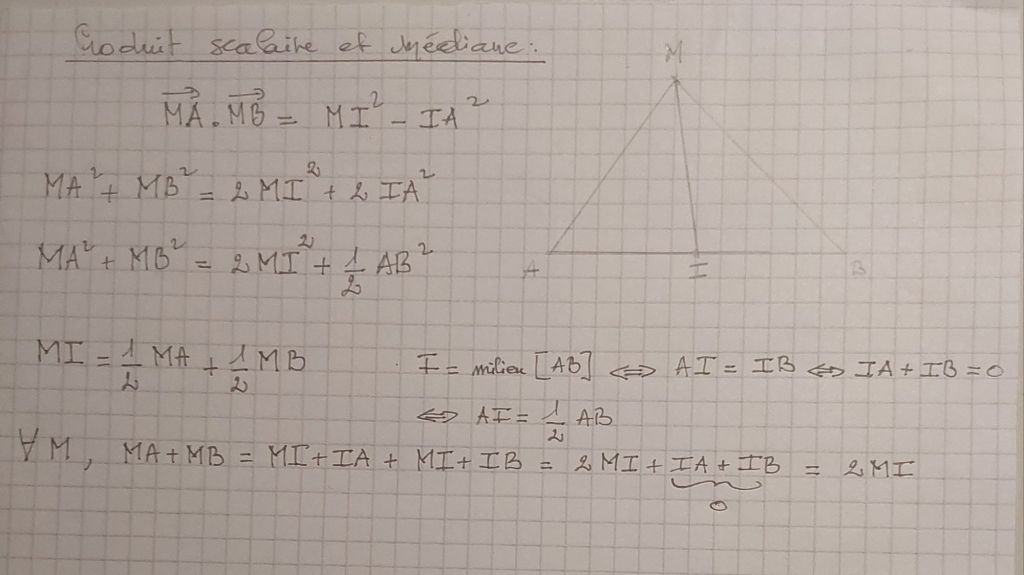 Produit scalaire et Médiane :
M
$\overrightarrow{MA} \cdot \overrightarrow{MB} = MI^2 - IA^2$
$MA^2 + MB^2 = 2 MI^2 + 2 IA^2$
$MA^2 + MB^2 = 2 MI^2 + \frac{1}{2} AB^2$
A I B
$MI = \frac{1}{2} MA + \frac{1}{2} MB$ . I = milieu [AB] ⟺ AI = IB ⟺ IA + IB = 0
⟺ $AI = \frac{1}{2} AB$
∀ M, MA + MB = MI + IA + MI + IB = 2 MI + $\underbrace{IA + IB}_{0}$ = 2 MI